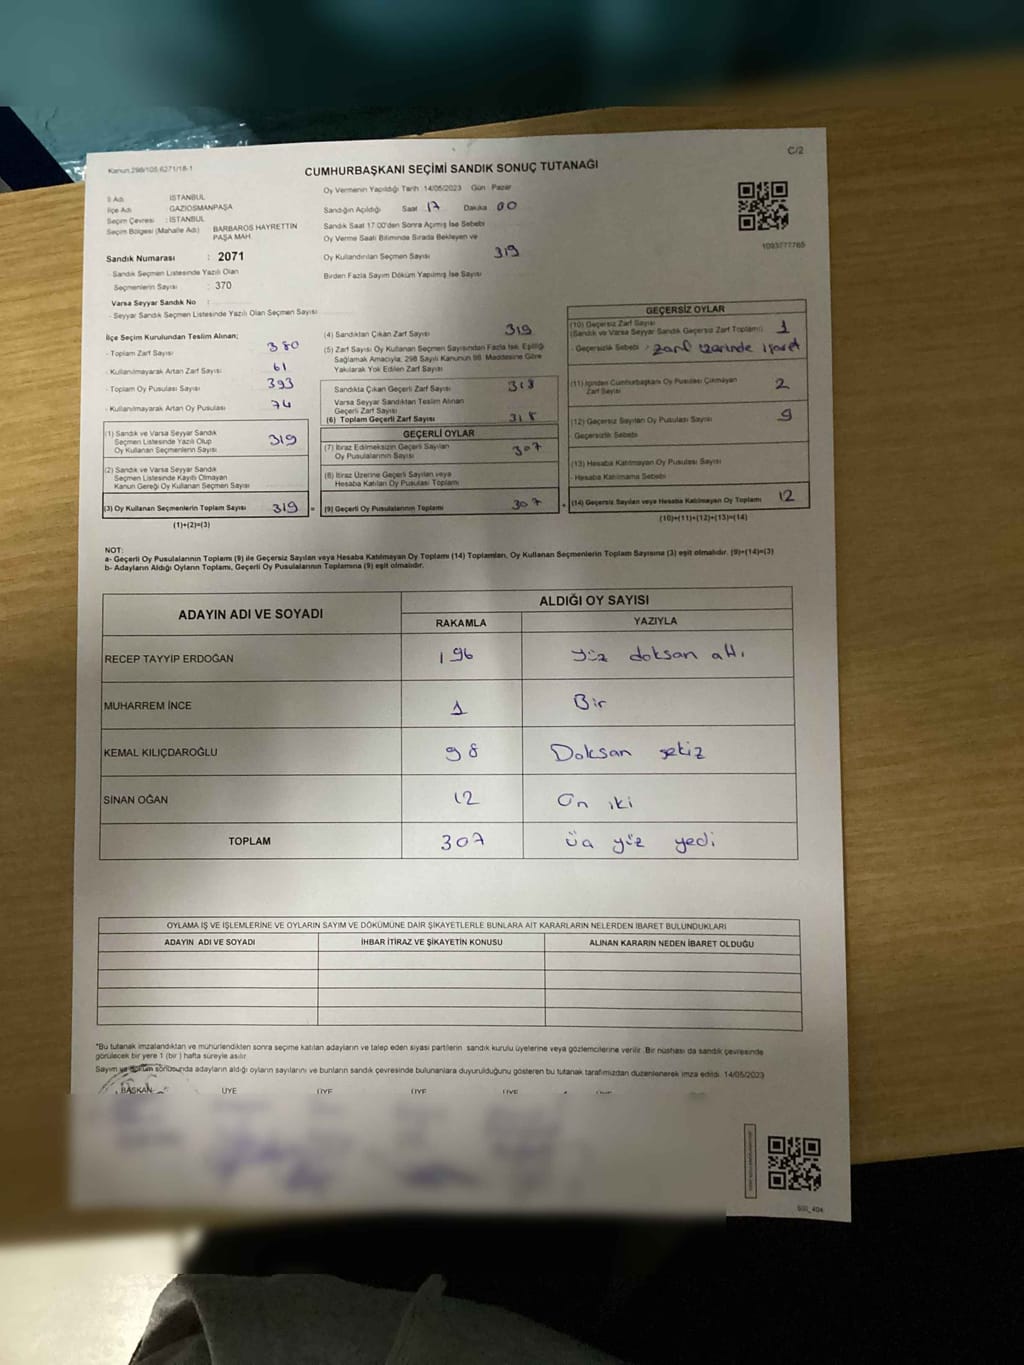 Kanun.298/105.6271/18-1
C/2
CUMHURBAŞKANI SEÇİMİ SANDIK SONUÇ TUTANAĞI
İl Adı : İSTANBUL
İlçe Adı : GAZİOSMANPAŞA
Seçim Çevresi : İSTANBUL
Seçim Bölgesi (Mahalle Adı) : BARBAROS HAYRETTİN PAŞA MAH.
Sandık Numarası : 2071
- Sandık Seçmen Listesinde Yazılı Olan
Seçmenlerin Sayısı : 370
Varsa Seyyar Sandık No :
- Seyyar Sandık Seçmen Listesinde Yazılı Olan Seçmen Sayısı :
Oy Vermenin Yapıldığı Tarih : 14/05/2023 Gün : Pazar
Sandığın Açıldığı Saat 17 Dakika 00
Sandık Saat 17:00'den Sonra Açılmış İse Sebebi
Oy Verme Saati Bitiminde Sırada Bekleyen ve
Oy Kullandırılan Seçmen Sayısı 319
Birden Fazla Sayım Döküm Yapılmış İse Sayısı
1093777765
İlçe Seçim Kurulundan Teslim Alınan;
- Toplam Zarf Sayısı 380
- Kullanılmayarak Artan Zarf Sayısı 61
- Toplam Oy Pusulası Sayısı 393
- Kullanılmayarak Artan Oy Pusulası 74
(1) Sandık ve Varsa Seyyar Sandık
Seçmen Listesinde Yazılı Olup
Oy Kullanan Seçmenlerin Sayısı 319
(2) Sandık ve Varsa Seyyar Sandık
Seçmen Listesinde Kayıtlı Olmayan
Kanun Gereği Oy Kullanan Seçmen Sayısı
(3) Oy Kullanan Seçmenlerin Toplam Sayısı 319 =
(1)+(2)=(3)
(4) Sandıktan Çıkan Zarf Sayısı 319
(5) Zarf Sayısı Oy Kullanan Seçmen Sayısından Fazla İse, Eşitliği
Sağlamak Amacıyla; 298 Sayılı Kanunun 98. Maddesine Göre
Yakılarak Yok Edilen Zarf Sayısı
Sandıkta Çıkan Geçerli Zarf Sayısı 318
Varsa Seyyar Sandıktan Teslim Alınan
Geçerli Zarf Sayısı
(6) Toplam Geçerli Zarf Sayısı 318
GEÇERLİ OYLAR
(7) İtiraz Edilmeksizin Geçerli Sayılan
Oy Pusulalarının Sayısı 307
(8) İtiraz Üzerine Geçerli Sayılan veya
Hesaba Katılan Oy Pusulası Toplamı
(9) Geçerli Oy Pusulalarının Toplamı 307 +
GEÇERSİZ OYLAR
(10) Geçersiz Zarf Sayısı
(Sandık ve Varsa Seyyar Sandık Geçersiz Zarf Toplamı) 1
- Geçersizlik Sebebi : Zarf üzerinde işaret
(11) İçinden Cumhurbaşkanı Oy Pusulası Çıkmayan
Zarf Sayısı 2
(12) Geçersiz Sayılan Oy Pusulası Sayısı 9
Geçersizlik Sebebi
(13) Hesaba Katılmayan Oy Pusulası Sayısı
- Hesaba Katılmama Sebebi
(14) Geçersiz Sayılan veya Hesaba Katılmayan Oy Toplamı 12
(10)+(11)+(12)+(13)=(14)
NOT:
a- Geçerli Oy Pusulalarının Toplamı (9) ile Geçersiz Sayılan veya Hesaba Katılmayan Oy Toplamı (14) Toplamları, Oy Kullanan Seçmenlerin Toplam Sayısına (3) eşit olmalıdır. (9)+(14)=(3)
b- Adayların Aldığı Oyların Toplamı, Geçerli Oy Pusulalarının Toplamına (9) eşit olmalıdır.
ADAYIN ADI VE SOYADI
ALDIĞI OY SAYISI
RAKAMLA YAZIYLA
RECEP TAYYİP ERDOĞAN 196 yüz doksan altı
MUHARREM İNCE 1 Bir
KEMAL KILIÇDAROĞLU 98 Doksan sekiz
SİNAN OĞAN 12 On iki
TOPLAM 307 üç yüz yedi
OYLAMA İŞ VE İŞLEMLERİNE VE OYLARIN SAYIM VE DÖKÜMÜNE DAİR ŞİKAYETLERLE BUNLARA AİT KARARLARIN NELERDEN İBARET BULUNDUKLARI
ADAYIN ADI VE SOYADI İHBAR İTİRAZ VE ŞİKAYETİN KONUSU ALINAN KARARIN NEDEN İBARET OLDUĞU
*Bu tutanak imzalandıktan ve mühürlendikten sonra seçime katılan adayların ve talep eden siyasi partilerin sandık kurulu üyelerine veya gözlemcilerine verilir. Bir nüshası da sandık çevresinde
görülecek bir yere 1 (bir ) hafta süreyle asılır.
Sayım ve döküm sonusunda adayların aldığı oyların sayılarını ve bunların sandık çevresinde bulunanlara duyurulduğunu gösteren bu tutanak tarafımızdan düzenlenerek imza edildi. 14/05/2023
BAŞKAN ÜYE ÜYE ÜYE ÜYE